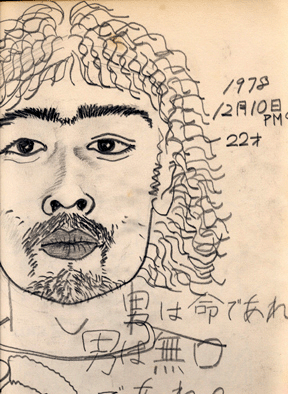 1978
12月10日
PM
22才
男は命であれ
男は無口
であれ